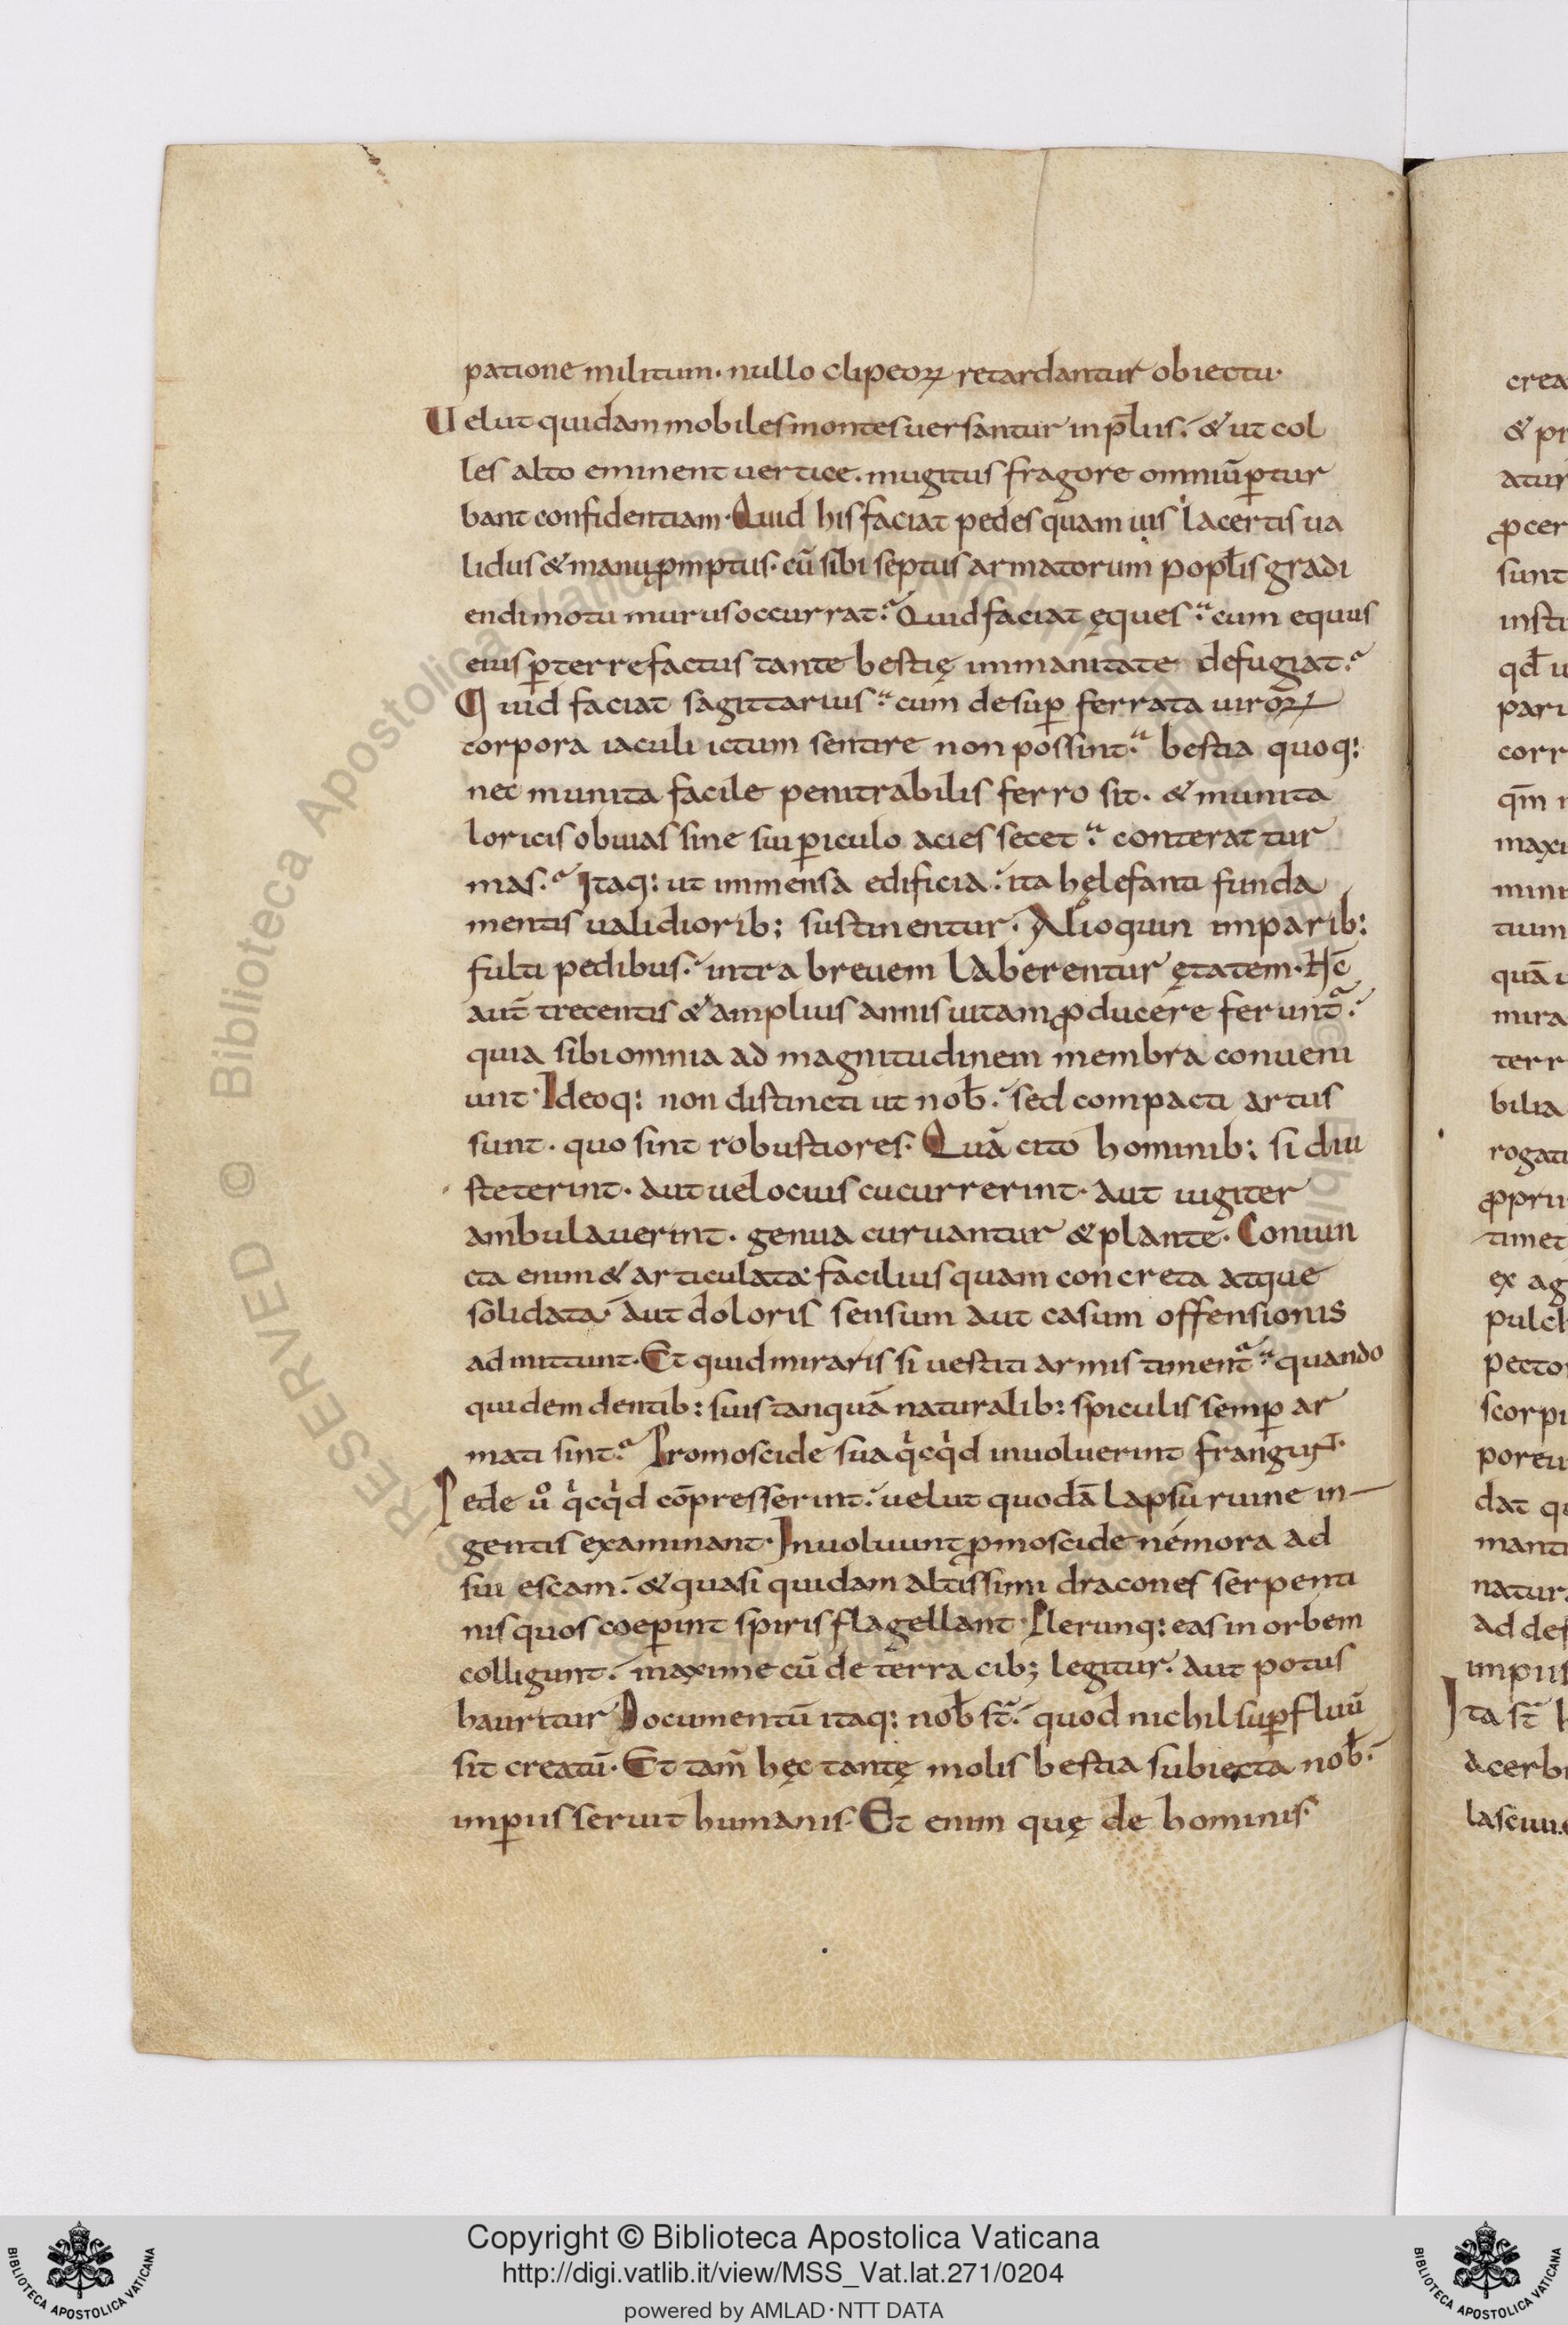 patione militum· nullo clipeoꝝ retardantur obiectu·
Velut quidam mobiles montes uersantur in p̄lius· & ut col
les alto eminent uertice· mugitus fragore omniū ꝑtur
bant confidentiam· Quid his faciat pedes quam uis lacertis ua
lidus & manu ꝓmptus· cū sibi septus armatorum popl̄is gradi
endi motu murus occurrat? Quid faciat ęques cum equus
eius ꝑterrefactus tante bestię immanitate defugiat?
Quid faciat sagittarius cum desuꝑ ferrata uiroꝝ
corpora iaculi ictum sentire non possint? bestia quoq:
nec munita facile penitrabilis ferro sit· & munita
loricis obuias sine sui ꝑiculo acies secet conterat tur
mas? Itaq: ut immensa edificia· ita hęlefanti funda
mentis ualidiorib; sustinentur· Alioquin imparib:
fulti pedibus· intra breuem laberentur ętatem· Hc̄
aut̄ trecentis & amplius annis uitam ꝓducere ferunt᷒
quia sibi omnia ad magnitudinem membra conueni
unt· Ideoq: non distincti ut nob̄· sed compacti artus
sunt· quo sint robustiores· Quā cito hominib; si diu
steterint· aut uelocius cucurrerint· aut iugiter
ambulauerint· genua curuantur & plante· Coniun
cta enim & articulata facilius quam concreta atque
solidata· aut doloris sensum aut casum offensionis
admittunt· Et quid miraris si uestiti armis timent᷒ quando
quidem dentib: suis tanquā naturalib: spiculis semꝑ ar
mati sint? Promoscide sua qͥcqͥd inuoluerint frangunt·
Pede uͦ qͥcqͥd cōpresserint· uelut quodā lapsu ruine in
gentis examinant· Inuoluunt ꝓmoscide nemora ad
sui escam· & quasi quidam altissimi dracones serpenti
nis quos coeꝑint spiris flagellant· Plerunq: eas in orbem
colligunt· maxime cū de terra cib; legitur· aut potus
hauritur Documentū itaq: nob̄ st̄· quod nichil suꝑfluū
sit creatū· Et tam̄ hęc tantę molis bestia subiecta nob̄·
imꝑiis seruit humanis· Et enim quę de hominis
crea
& pr
atur
ꝓcer
sunt
insti
qd̄ u
pari
corr
qm̄
maxi
mini
tium
quā
mira
terr
bilia
rogati
ꝓpri
timet
ex ag
pulch
pecto
scorpi
poreu
dat
manti
natur
ad def
impiis
Ita st̄
acerbi
lasciui
RESERVED © Biblioteca Apostolica Vaticana
Copyright © Biblioteca Apostolica Vaticana
http://digi.vatlib.it/view/MSS_Vat.lat.271/0204
powered by AMLAD·NTT DATA
BIBLIOTECA APOSTOLICA VATICANA
BIBLIOTECA APOSTOLICA VATICANA